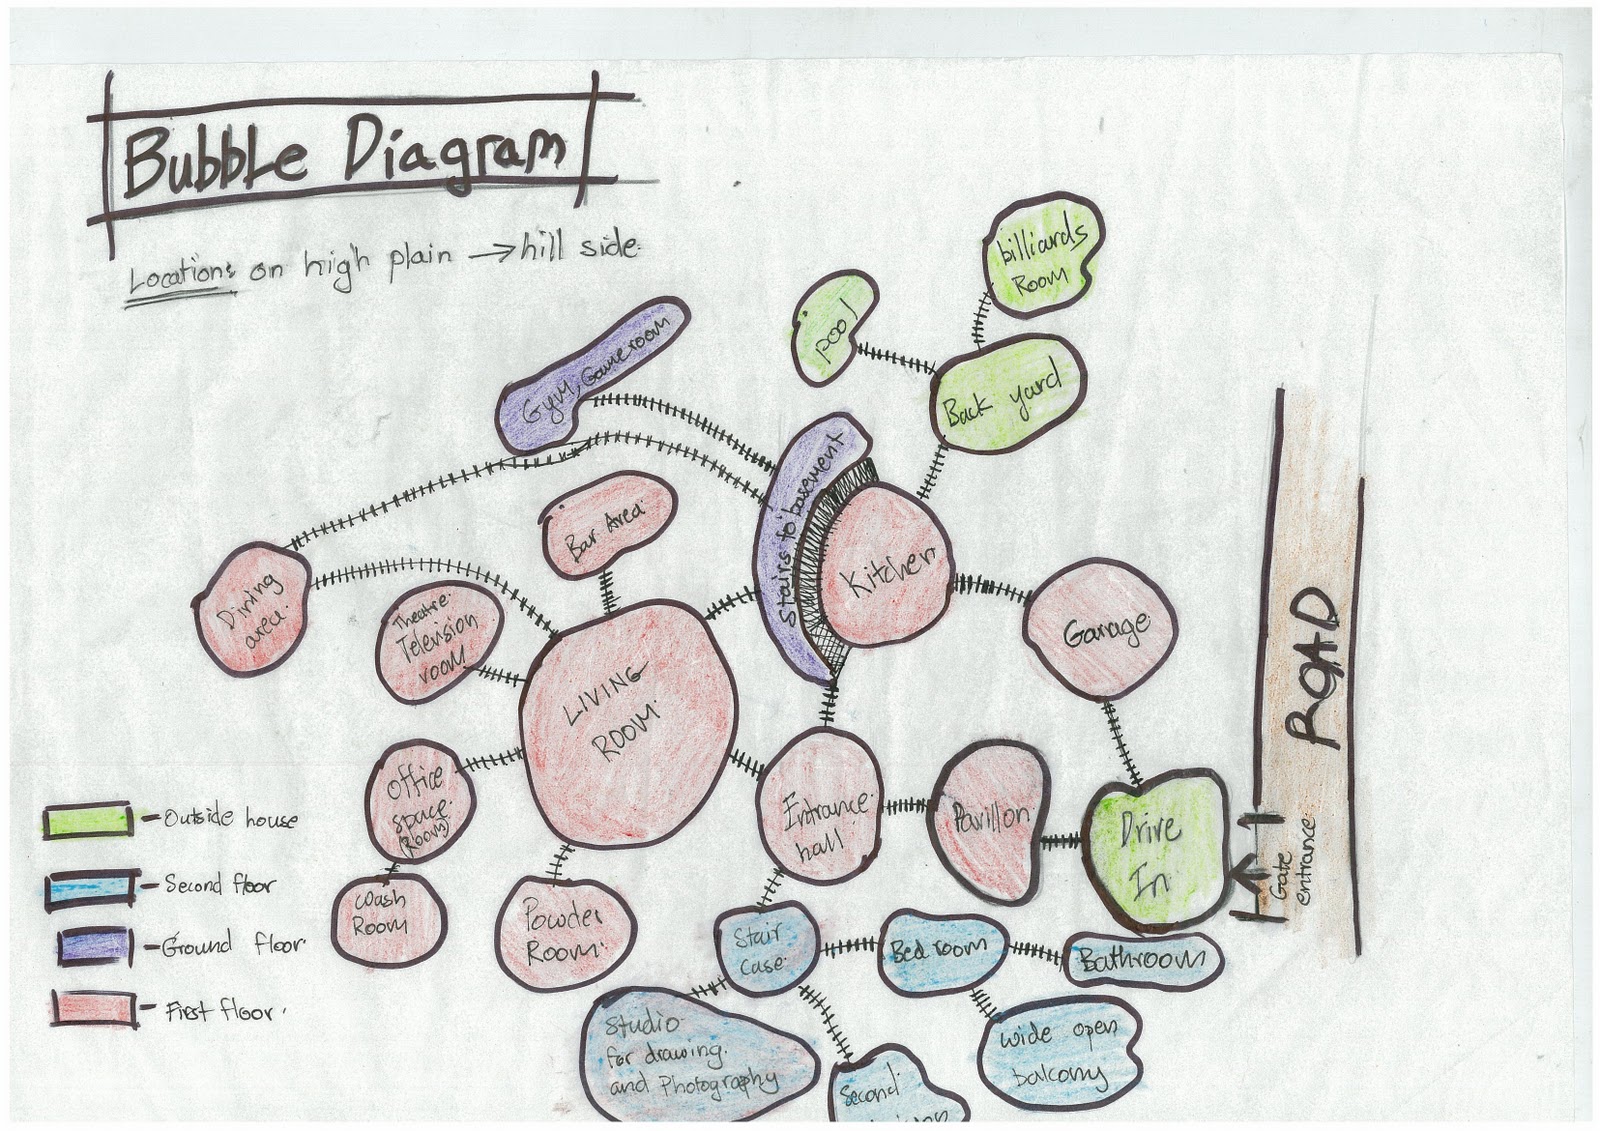 Bubble Diagram
Location: on high plain → hill side.
billiards
Room
pool
Back yard
Gym, Gameroom
Stairs to basement
Bar Area.
Kitchen
Dining
area.
Theatre.
Television
room
Garage
LIVING
ROOM.
ROAD
Office
space.
(Room)
Entrance
hall
Pavillon
Drive
In
Gate
entrance.
Wash
Room
Powder
Room.
Stair
Case.
Bedroom
Bathroom
Studio
for drawing.
and Photography
Second
wide open
balcony
- Outside house
- Second floor
- Ground floor.
- First floor.